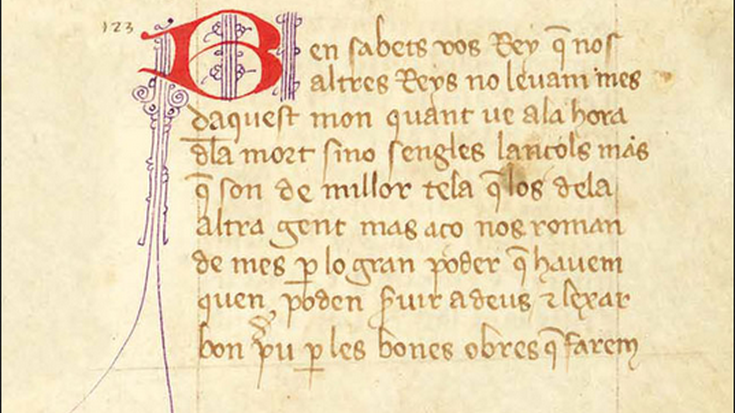 123
Ben sabets vos Rey q̄ nos
altres Reys no levam mes
daquest mon quant ve ala hora
dla mort sino sengles lançols mas
q̄ son de millor tela q̄ los dela
altra gent mas aço nos roman
de mes p̱ lo gran poder q̄ havem
quen poden ẜuir a deus ⁊ lexar
bon p̱u p̱ les bones obres q̄ farem